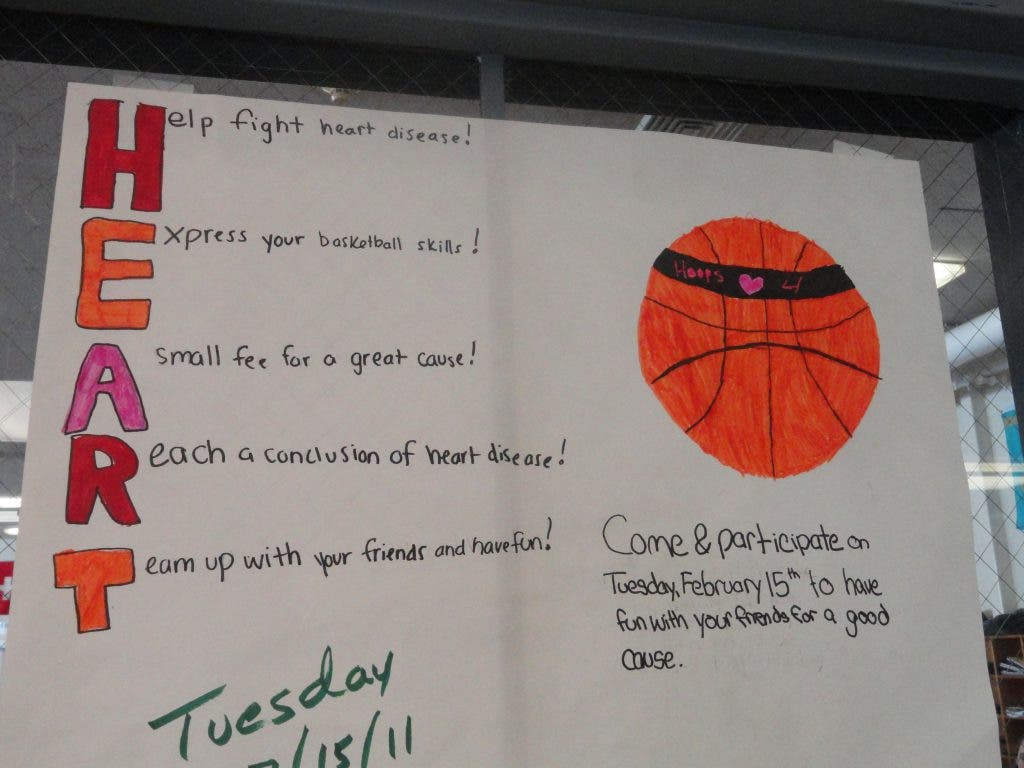 Help fight heart disease!
Express your basketball skills!
A small fee for a great cause!
Reach a conclusion of heart disease!
Team up with your friends and have fun!
Tuesday
2/15/11
Hoops ♥ 4
Come & participate on
Tuesday, February 15th to have
fun with your friends for a good
cause.